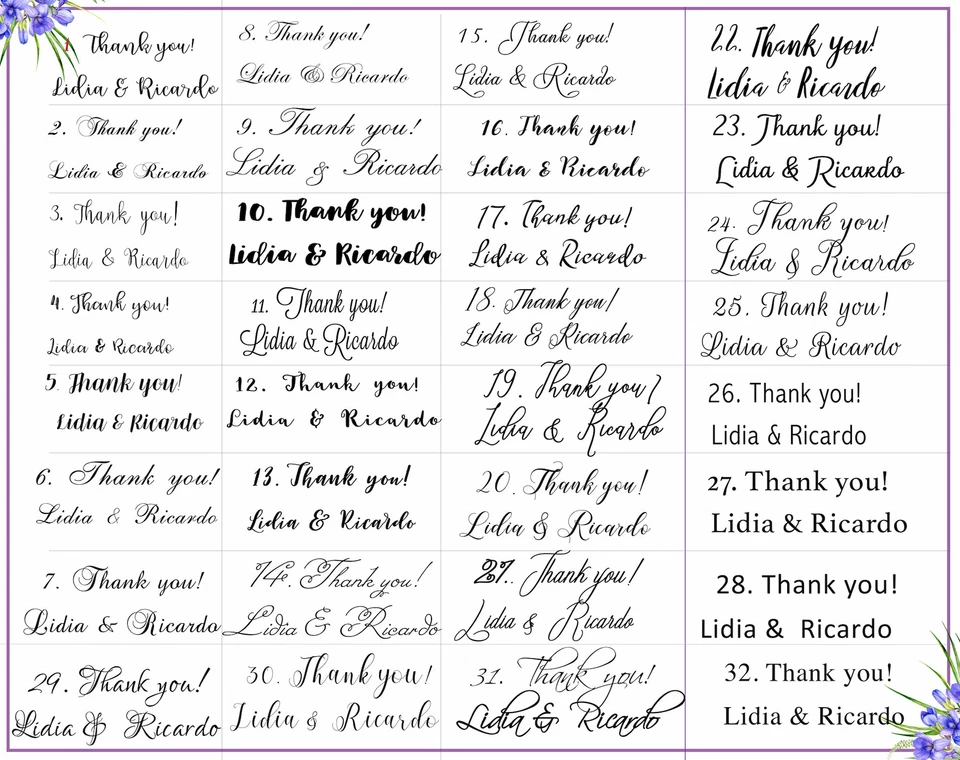 1 Thank you!
Lidia & Ricardo
2. Thank you!
Lidia & Ricardo
3. Thank you!
Lidia & Ricardo
4. Thank you!
Lidia & Ricardo
5. Thank you!
Lidia & Ricardo
6. Thank you!
Lidia & Ricardo
7. Thank you!
Lidia & Ricardo
8. Thank you!
Lidia & Ricardo
9. Thank you!
Lidia & Ricardo
10. Thank you!
Lidia & Ricardo
11. Thank you!
Lidia & Ricardo
12. Thank you!
Lidia & Ricardo
13. Thank you!
Lidia & Ricardo
14. Thank you!
Lidia & Ricardo
15. Thank you!
Lidia & Ricardo
16. Thank you!
Lidia & Ricardo
17. Thank you!
Lidia & Ricardo
18. Thank you!
Lidia & Ricardo
19. Thank you!
Lidia & Ricardo
20. Thank you!
Lidia & Ricardo
21. Thank you!
Lidia & Ricardo
22. Thank you!
Lidia & Ricardo
23. Thank you!
Lidia & Ricardo
24. Thank you!
Lidia & Ricardo
25. Thank you!
Lidia & Ricardo
26. Thank you!
Lidia & Ricardo
27. Thank you!
Lidia & Ricardo
28. Thank you!
Lidia & Ricardo
29. Thank you!
Lidia & Ricardo
30. Thank you!
Lidia & Ricardo
31. Thank you!
Lidia & Ricardo
32. Thank you!
Lidia & Ricardo